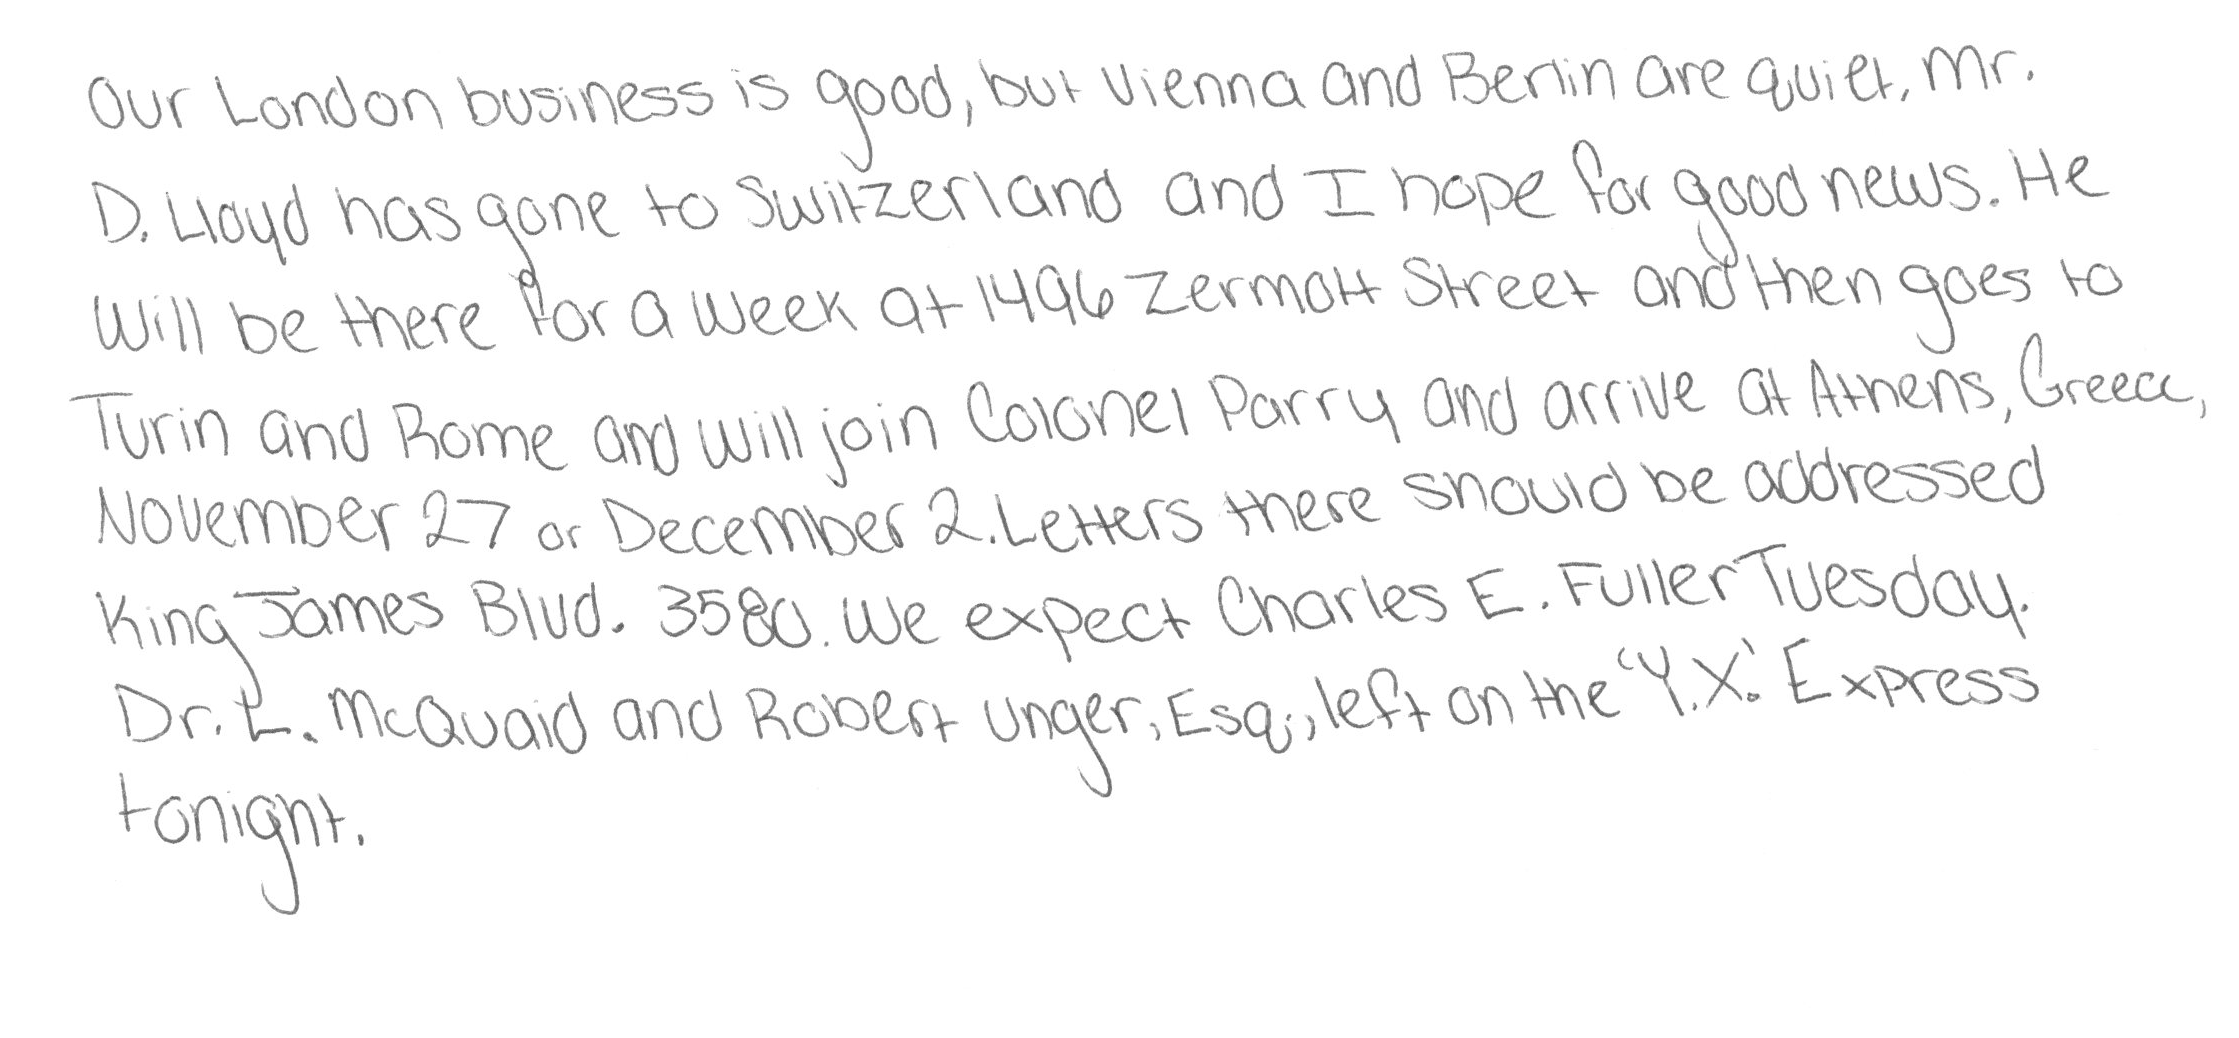 Our London business is good, but Vienna and Berlin are quiet. Mr.
D. Lloyd has gone to Switzerland and I hope for good news. He
will be there for a week at 1496 Zermott Street and then goes to
Turin and Rome and will join Colonel Parry and arrive at Athens, Greece,
November 27 or December 2. Letters there should be addressed
King James Blvd. 3580. We expect Charles E. Fuller Tuesday.
Dr. L. McQuaid and Robert Unger, Esq., left on the 'Y.X.' Express
tonight.